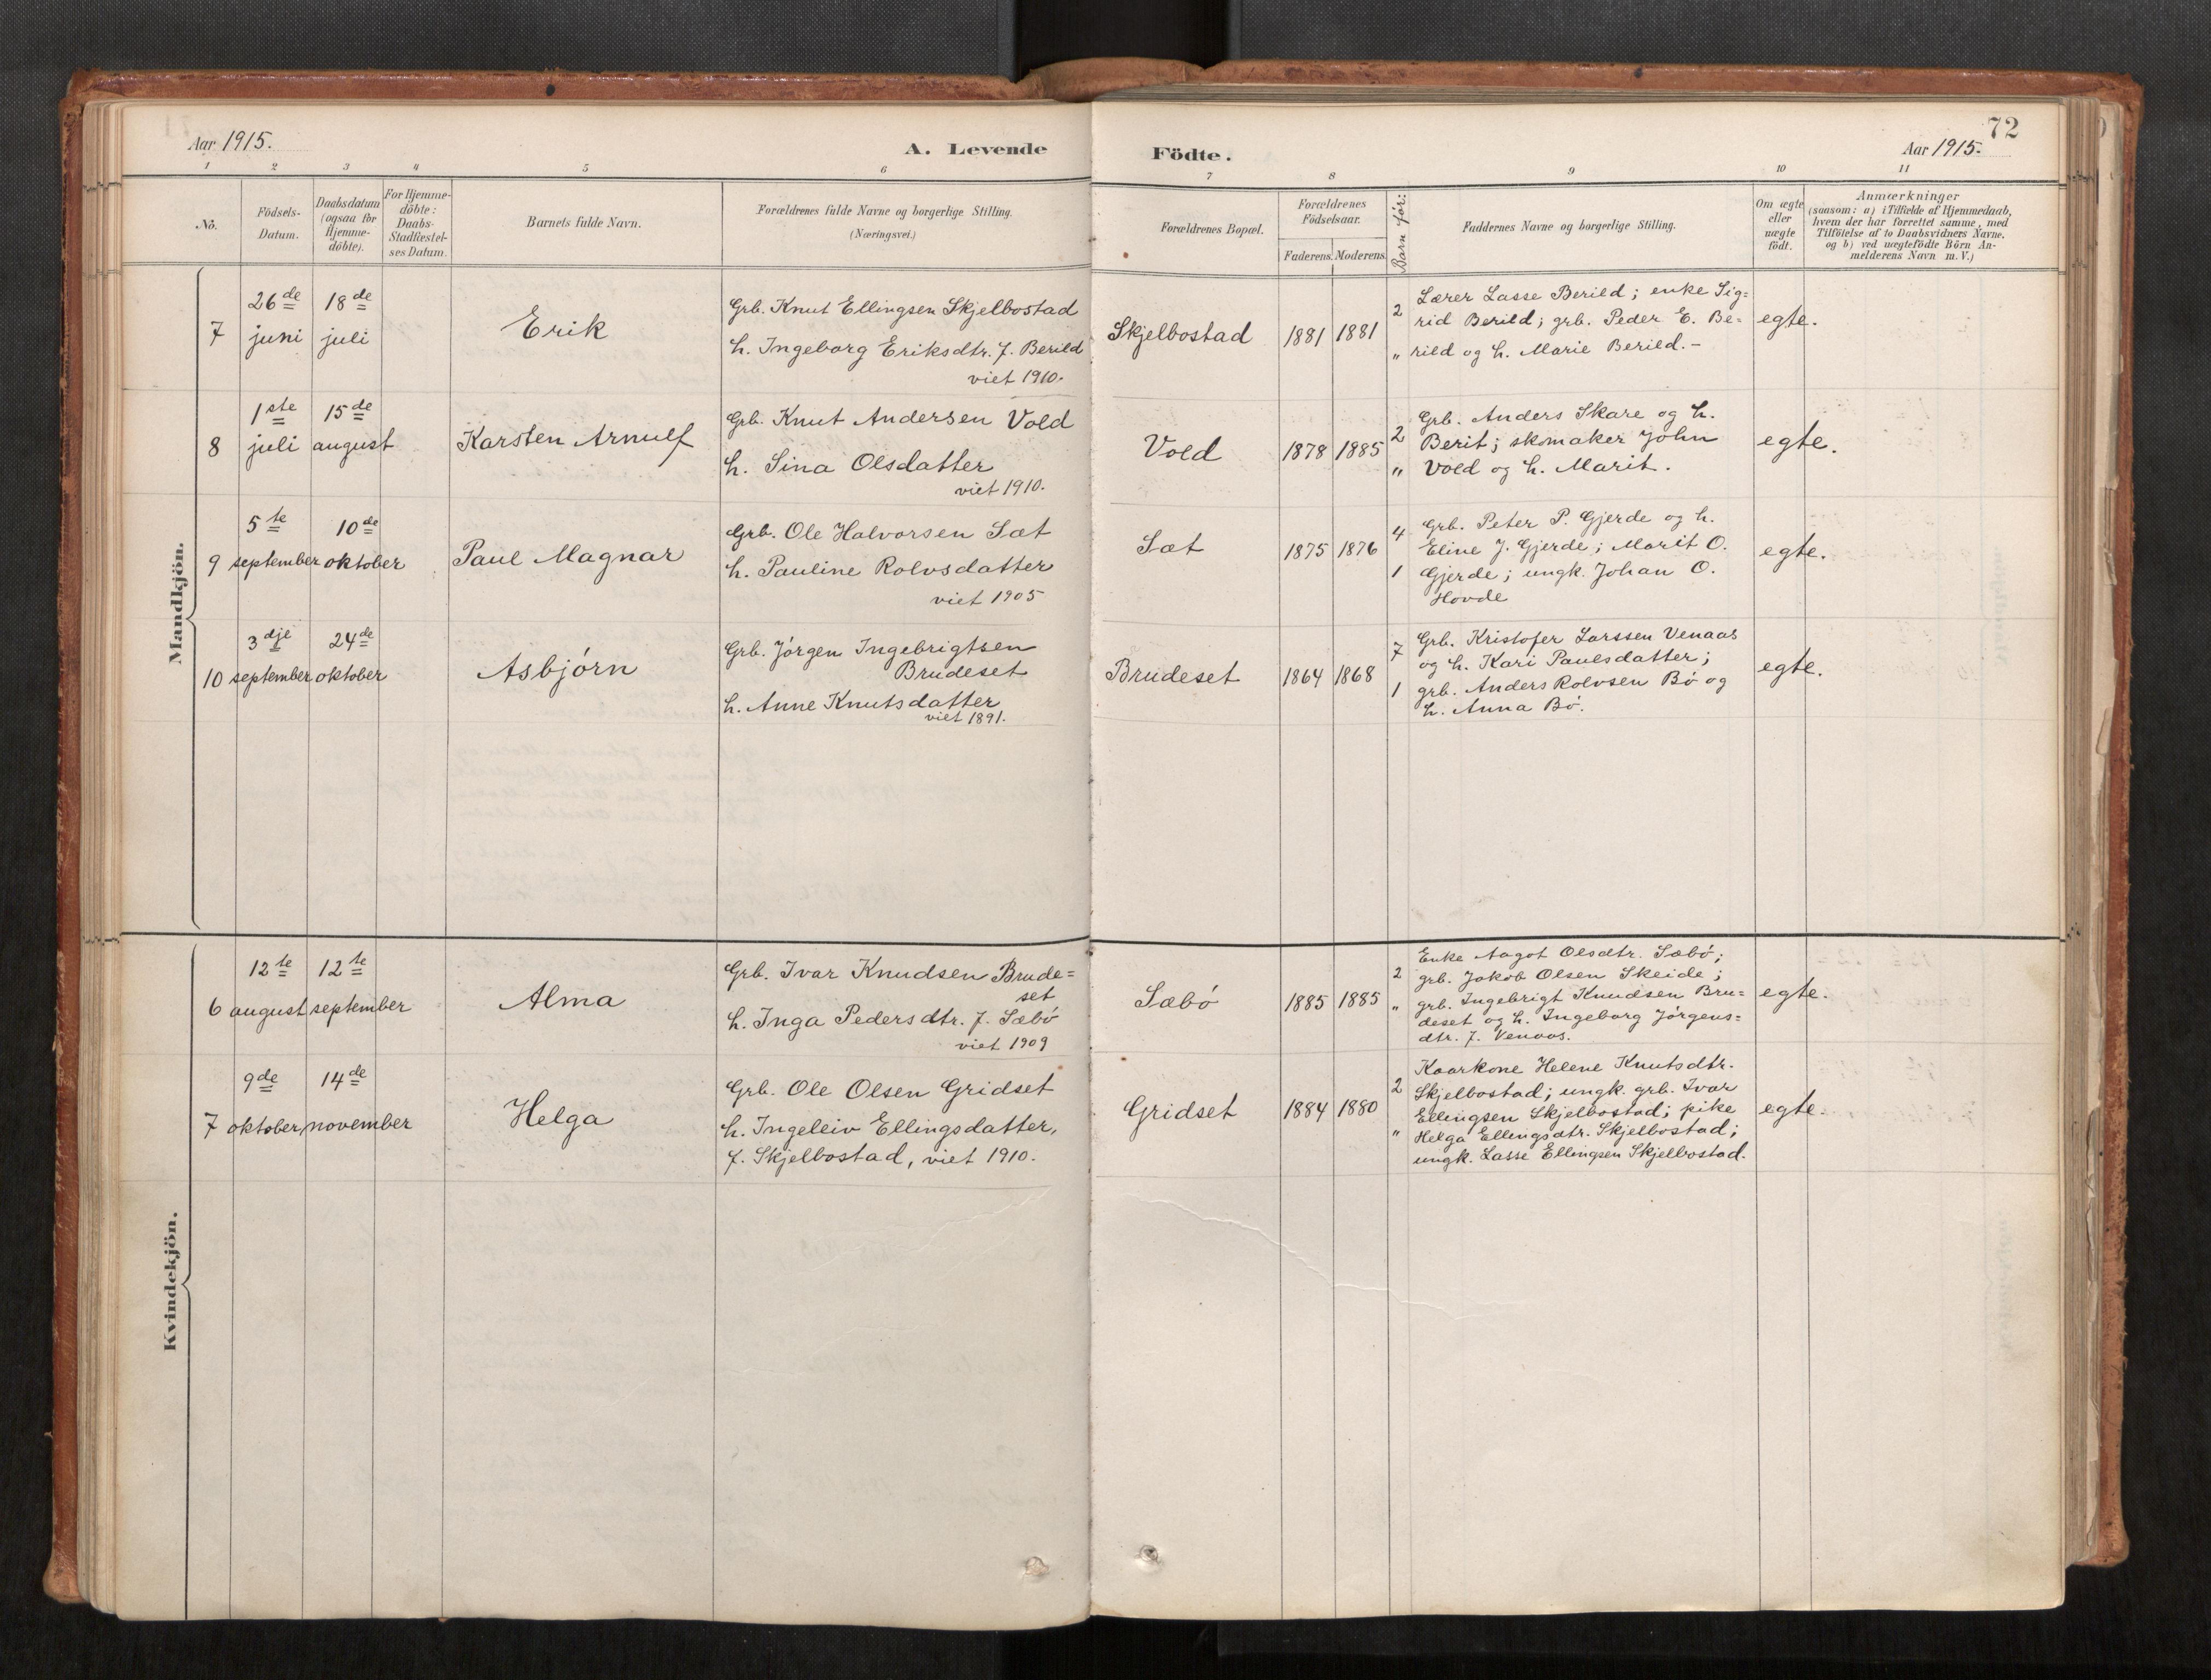 72
Aar 1915.
A. Levende
Födte.
Aar 1915.
1 2 3 4 5 6 7 8 9 10 11
No.
Födsels-
Datum.
Daabsdatum
(ogsaa for
Hjemme-
döbte).
For Hjemme-
döbte:
Daabs-
Stadfæstel-
ses Datum.
Barnets fulde Navn.
Forældrenes fulde Navne og borgerlige Stilling.
(Næringsvei.)
Forældrenes Bopæl.
Forældrenes
Födselsaar.
Faderens. Moderens.
Barn før:
Faddernes Navne og borgerlige Stilling.
Om ægte
eller
uægte
födt.
Anmærkninger
(saasom: a) i Tilfælde af Hjemmedaab,
hvem der har forrettet samme, med
Tilföielse af to Daabsvidners Navne,
og b) ved uægtefödte Börn An-
melderens Navn m. V.)
Mandkjön.
7
26de
juni
18de
juli
Erik
Grb. Knut Ellingsen Skjelbostad
h. Ingeborg Eriksdtr. f. Berild
viet 1910.
Skjelbostad
1881
1881
2
"
Lærer Lasse Berild; enke Sig=
rid Berild; grb. Peder E. Be=
rild og h. Marie Berild.-
egte.
8
1ste
juli
15de
august
Karsten Arnulf
Grb. Knut Andersen Vold
h. Sina Olsdatter
viet 1910.
Vold
1878
1885
2
"
Grb. Anders Skare og h.
Berit; skomaker John
Vold og h. Marit.
egte.
9
5te
september
10de
oktober
Paul Magnar
Grb. Ole Halvorsen Sæt
h. Pauline Rolvsdatter
viet 1905
Sæt
1875
1876
4
1
Grb. Peter P. Gjerde og h.
Eline J. Gjerde; Marit O.
Gjerde; ungk. Johan O.
Hovde
egte.
10
3dje
september
24de
oktober
Asbjørn
Grb. Jørgen Ingebrigtsen
Brudeset
h. Anne Knutsdatter
viet 1891.
Brudeset
1864
1868
7
1
Grb. Kristofer Larssen Venaas
og h. Kari Paulsdatter;
grb. Anders Rolvsen Bø og
h. Anna Bø.
egte.
Kvindekjön.
6
12te
august
12te
september
Alma
Grb. Ivar Knudsen Brude=
set
h. Inga Pedersdtr. f. Sæbø
viet 1909
Sæbø
1885
1885
2
"
Enke Aagot Olsdtr. Sæbø;
grb. Jakob Olsen Skeide;
grb. Ingebrigt Knudsen Bru=
deset og h. Ingeborg Jørgens=
dtr. f. Venaas.
egte.
7
9de
oktober
14de
november
Helga
Grb. Ole Olsen Gridset
h. Ingeleiv Ellingsdatter,
f. Skjelbostad, viet 1910.
Gridset
1884
1880
2
"
Kaarkone Helene Knutsdtr.
Skjelbostad; ungk. grb. Ivar
Ellingsen Skjelbostad; pike
Helga Ellingsdtr. Skjelbostad;
ungk. Lasse Ellingsen Skjelbostad.
egte.